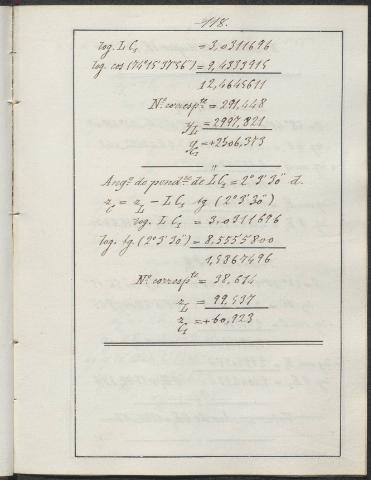 118.
log. L C₁ = 3,0311696
log. cos (74°15'37"56"') = 9,4333915
12,4645611
N.º corresp.te = 291,448
y_L = 2997,821
y_C₁ = +2506,373
"
Ang.º de pend.te de L C₁ = 2° 3' 30" d.
z_C = z_L - L C₁ tg (2° 3' 30")
log. L C₁ = 3,0311696
log. tg. (2° 3' 30") = 8,5555800
1,5867496
N.º corresp.te = 38,614
z_L = 99,537
z_C₁ = +60,923